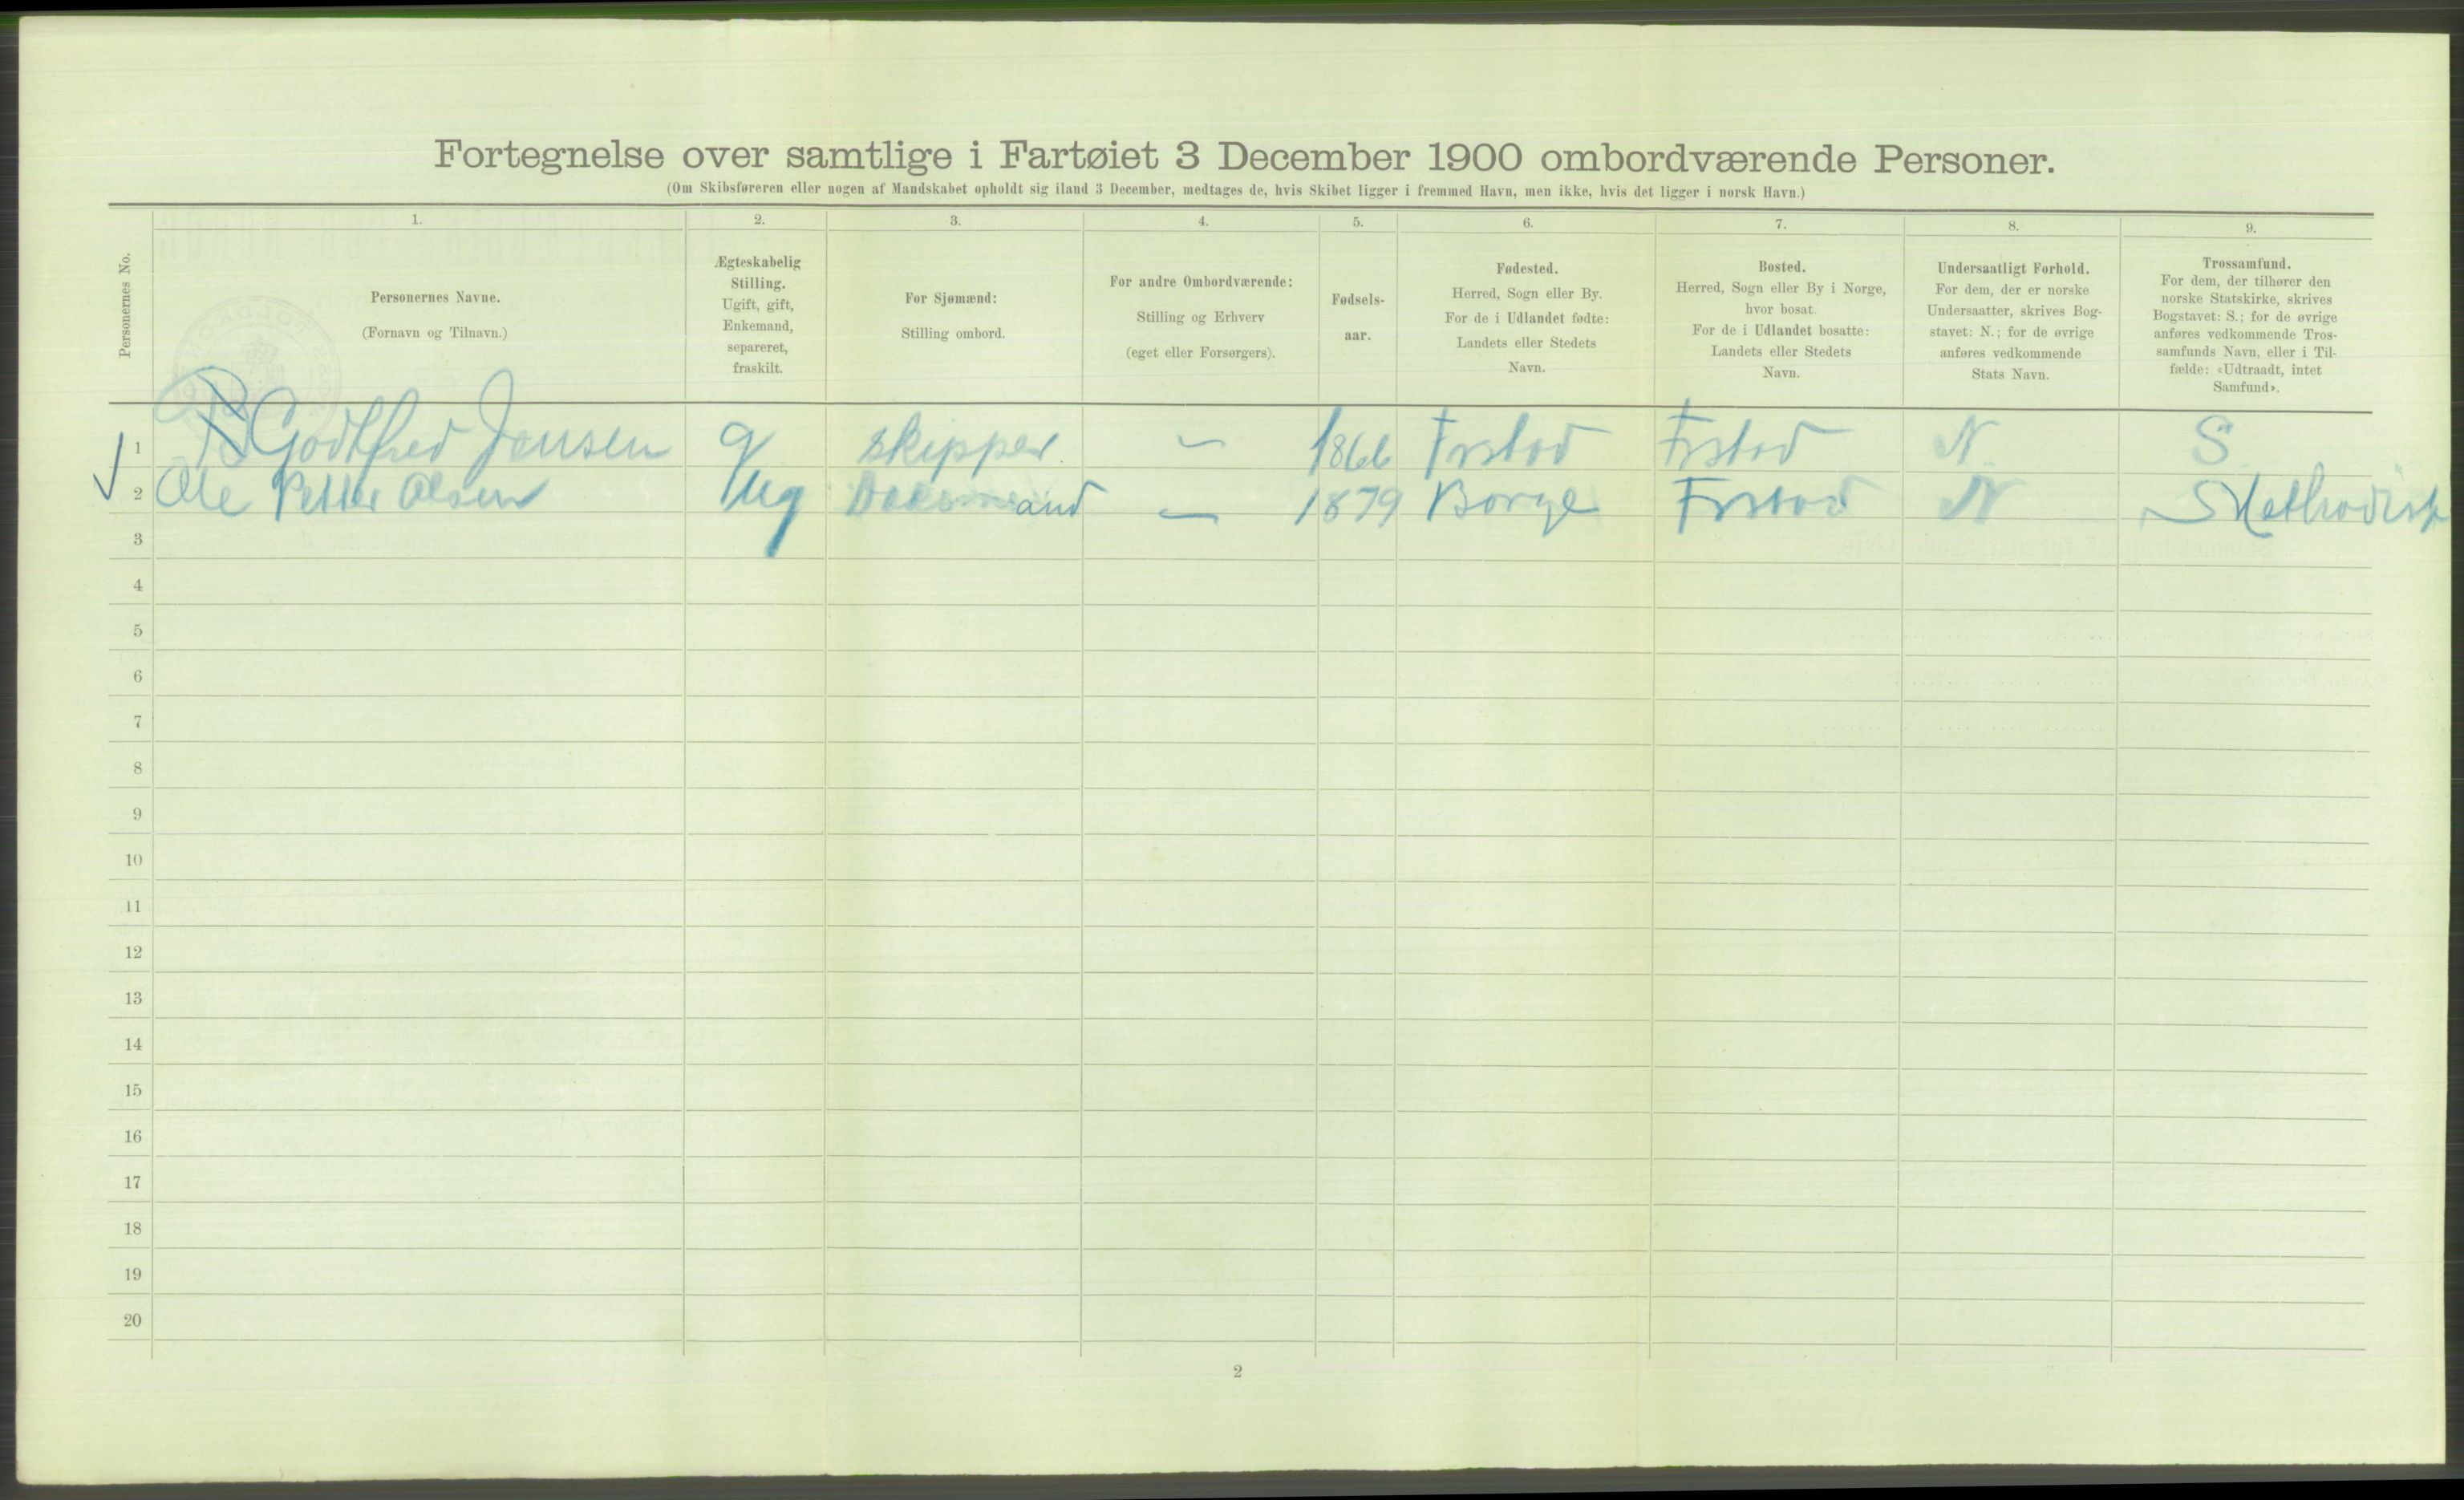 Fortegnelse over samtlige i Fartøiet 3 December 1900 ombordværende Personer.
(Om Skibsføreren eller nogen af Mandskabet opholdt sig iland 3 December, medtages de, hvis Skibet ligger i fremmed Havn, men ikke, hvis det ligger i norsk Havn.)
Personernes No.
1.
Personernes Navne.
(Fornavn og Tilnavn.)
2.
Ægteskabelig
Stilling.
Ugift, gift,
Enkemand,
separeret,
fraskilt.
3.
For Sjømænd:
Stilling ombord.
4.
For andre Ombordværende:
Stilling og Erhverv
(eget eller Forsørgers).
5.
Fødsels-
aar.
6.
Fødested.
Herred, Sogn eller By.
For de i Udlandet fødte:
Landets eller Stedets
Navn.
7.
Bosted.
Herred, Sogn eller By i Norge,
hvor bosat.
For de i Udlandet bosatte:
Landets eller Stedets
Navn.
8.
Undersaatligt Forhold.
For dem, der er norske
Undersaatter, skrives Bog-
stavet: N.; for de øvrige
anføres vedkommende
Stats Navn.
9.
Trossamfund.
For dem, der tilhører den
norske Statskirke, skrives
Bogstavet: S.; for de øvrige
anføres vedkommende Tros-
samfunds Navn, eller i Til-
fælde: «Udtraadt, intet
Samfund».
1 Godtfred Jensen g skipper – 1866 Frstad Frstad N S
2 Ole Petter Olsen ug – 1879 Borge Frstad N Methodist
3
4
5
6
7
8
9
10
11
12
13
14
15
16
17
18
19
20
2